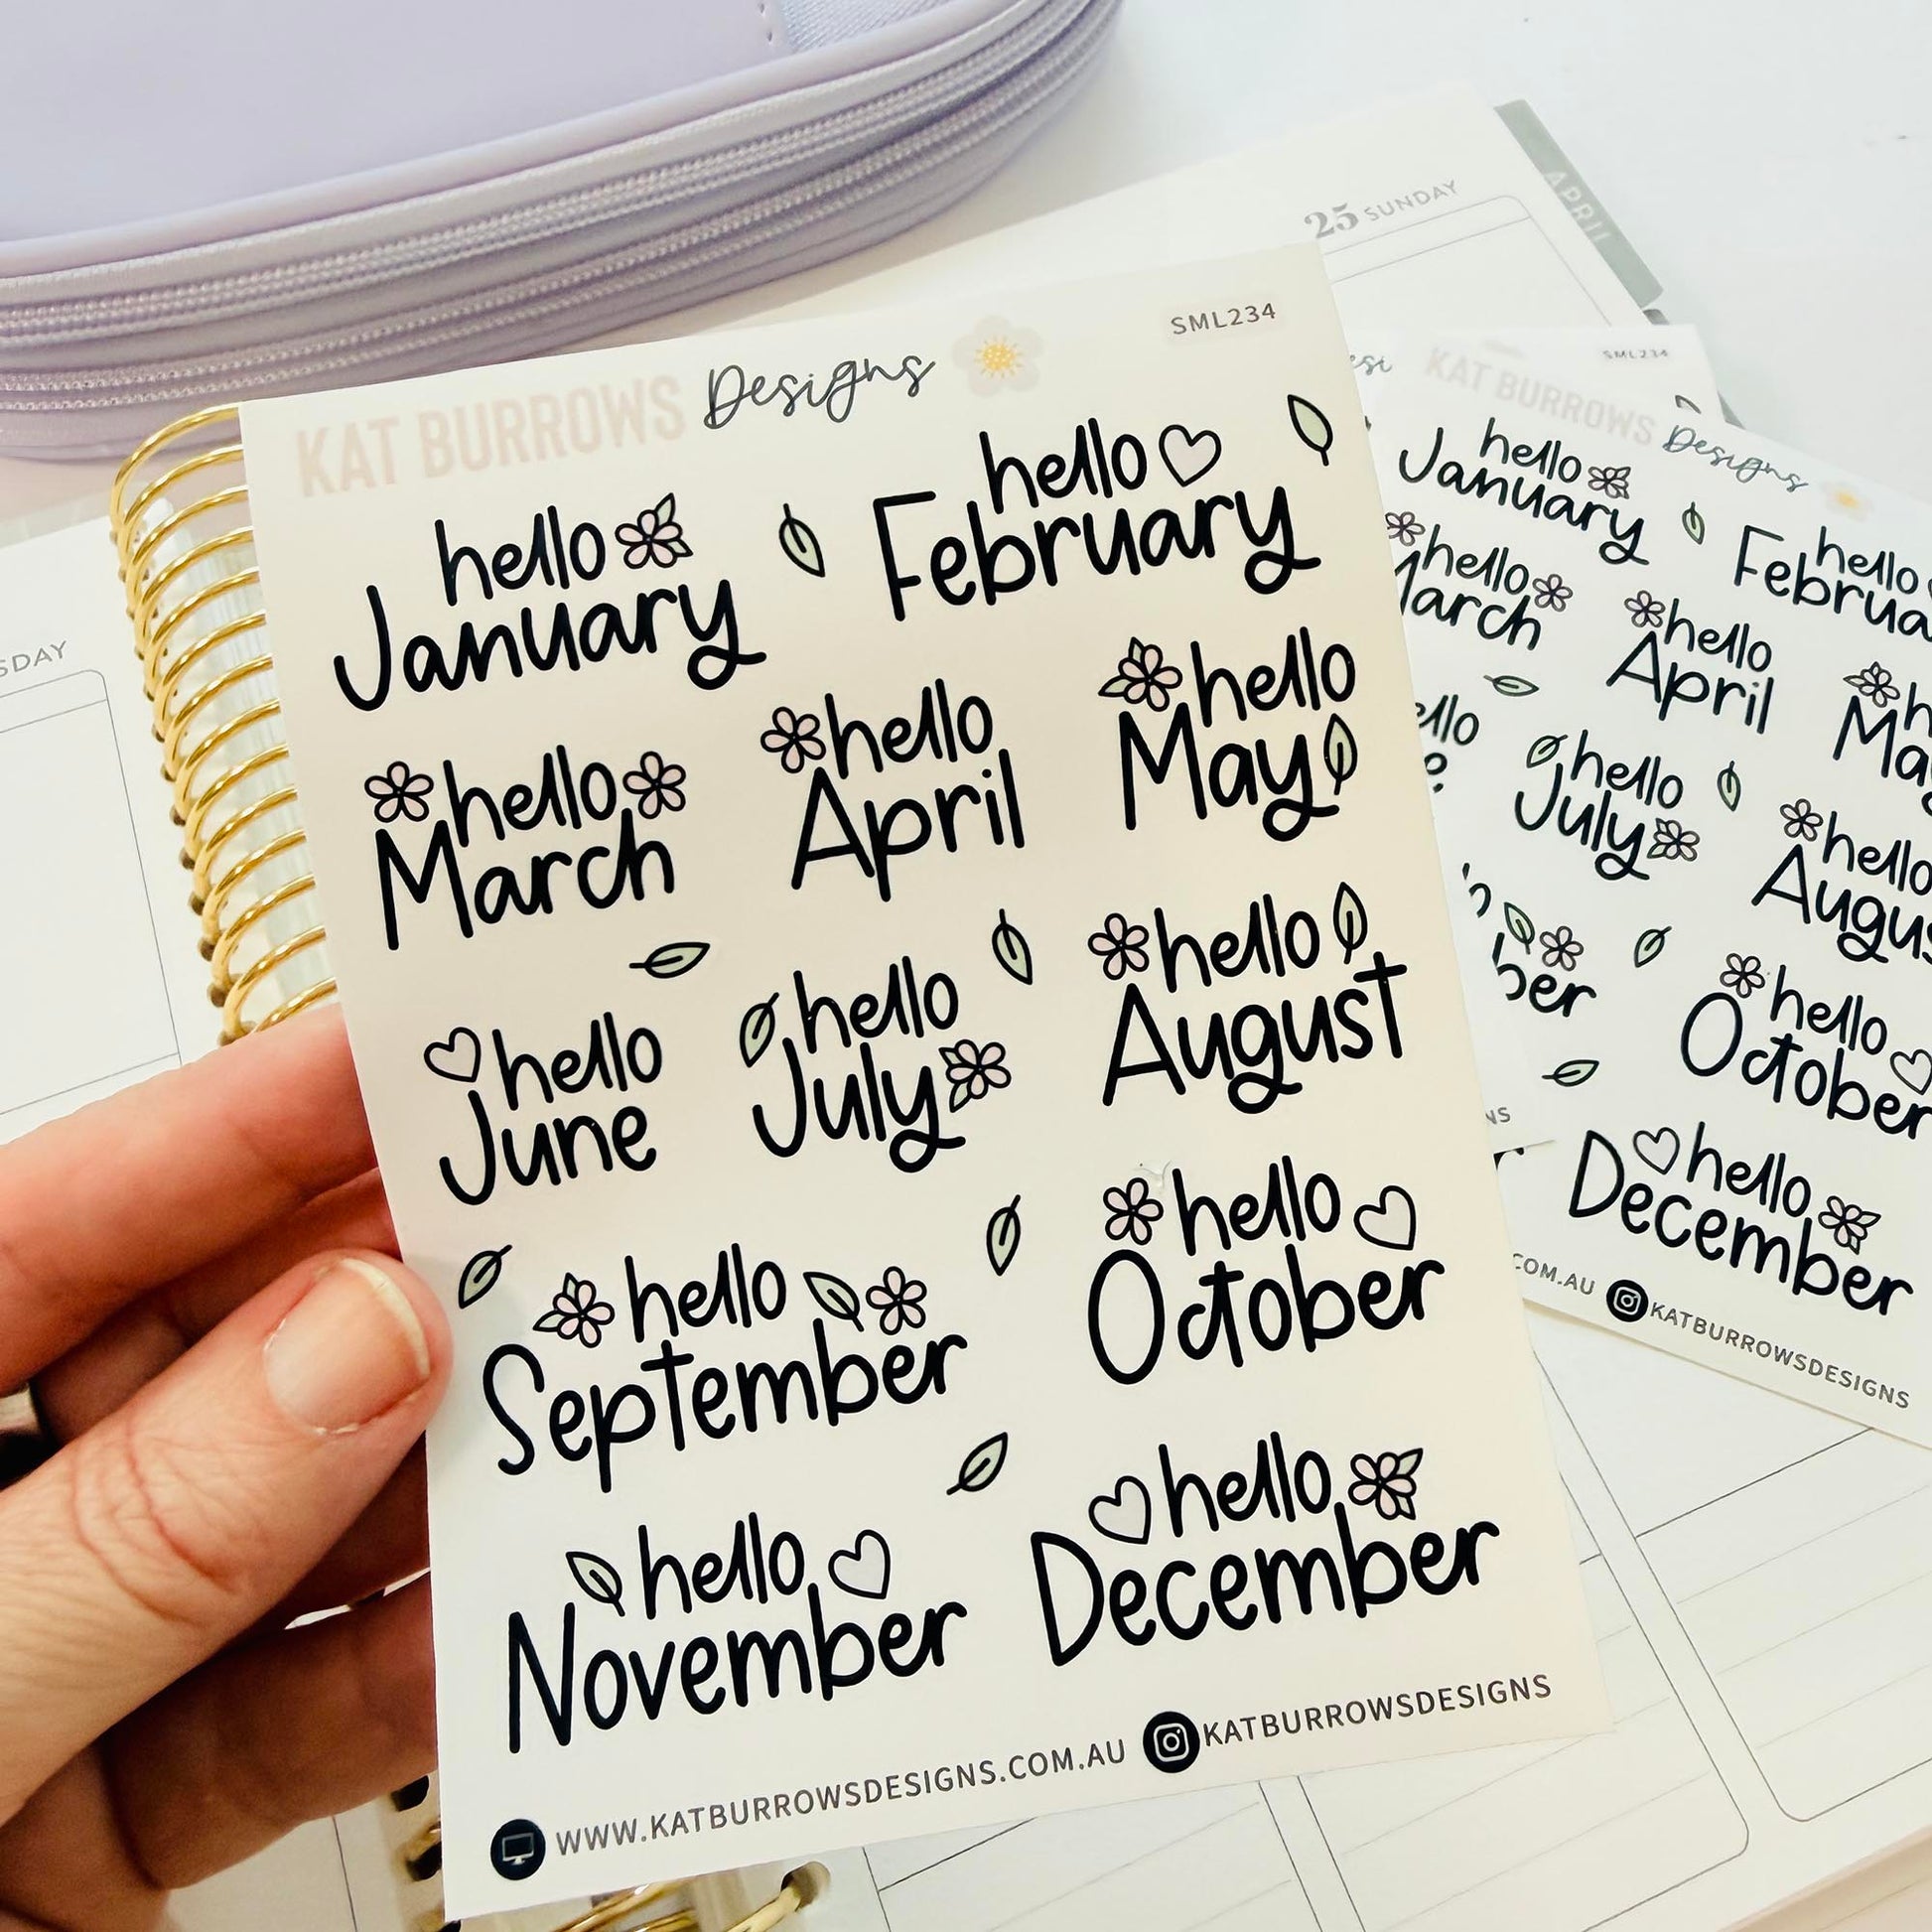 25 SUNDAY
APRIL
SDAY
KAT BURROWS Designs
SML234
hello
January
hello
February
hello
March
hello
April
hello
May
hello
June
hello
July
hello
August
hello
September
hello
October
hello
November
hello
December
WWW.KATBURROWSDESIGNS.COM.AU
KATBURROWSDESIGNS
KAT BURROWS Designs
SML234
hello
January
hello
Februa
hello
arch
hello
April
h
Ma
ello
hello
July
hello
Augus
ber
hello
October
hello
December
COM.AU
KATBURROWSDESIGNS